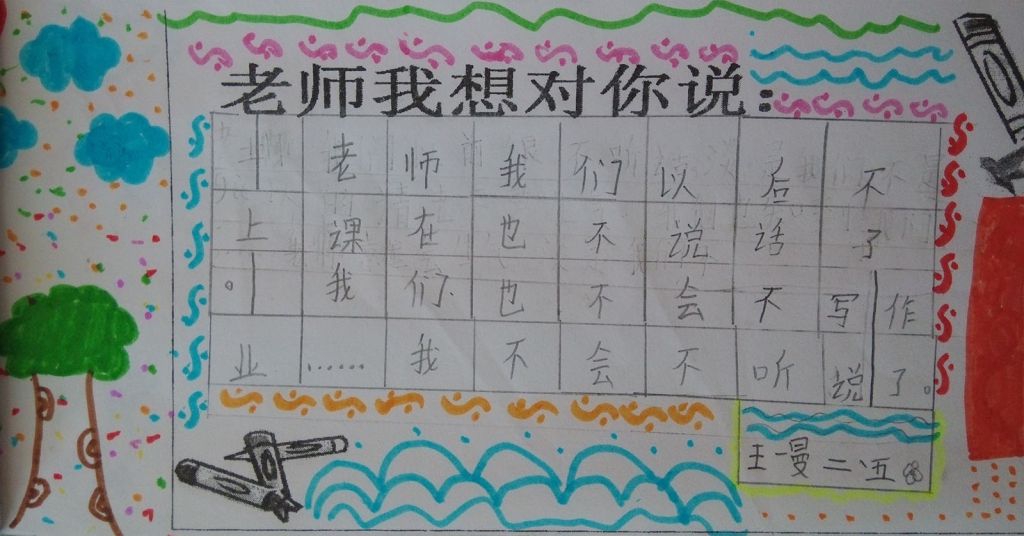 老师我想对你说：
老师我们以后不
上课在也不说话了
。我们也不会不写作
业……我不会不听说了。
王一曼二·五